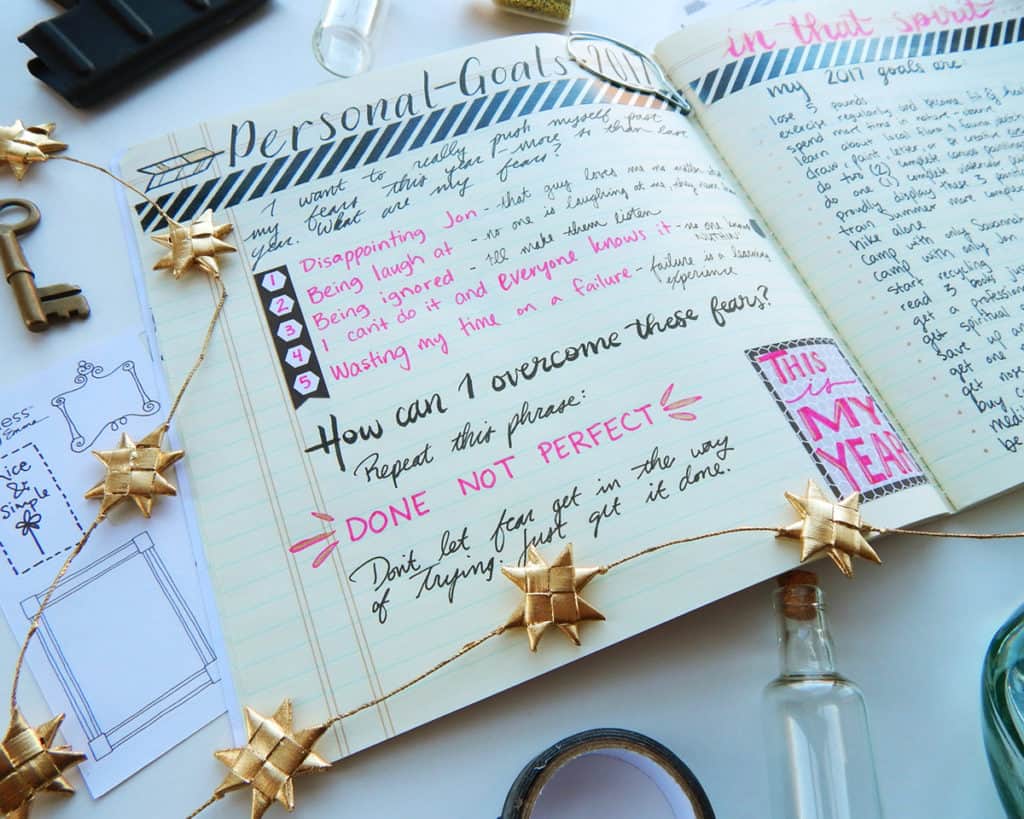 Personal-Goals 2017
I want to really push myself past
my fears this year - more so than last
year. What are my fears?
1 Disappointing Jon - that guy loves me no matter what
2 Being laugh at - no one is laughing at me, they never
3 Being ignored - I'll make them listen
4 I can't do it and everyone knows it - no one knows NUTHIN'
5 Wasting my time on a failure - failure is a learning experience
How can I overcome these fears?
Repeat this phrase:
DONE NOT PERFECT
Don't let fear get in the way
of trying. Just get it done.
THIS
is
MY
YEAR
in that spirit
my 2017 goals are:
lose 5 pounds
exercise regularly and become fit &
spend more time in nature -
learn about local flora &
draw, paint, letter, or
do two (2) complete canvas
do one (1) complete
proudly display these 3
train Summer more
hike alone
camp with only Savanna
camp with only Jon
start recycling
read 3 books
get a profession
get spiritual
save up and
get one
get
buy
be
ess™
Emma
Nice
&
Simple